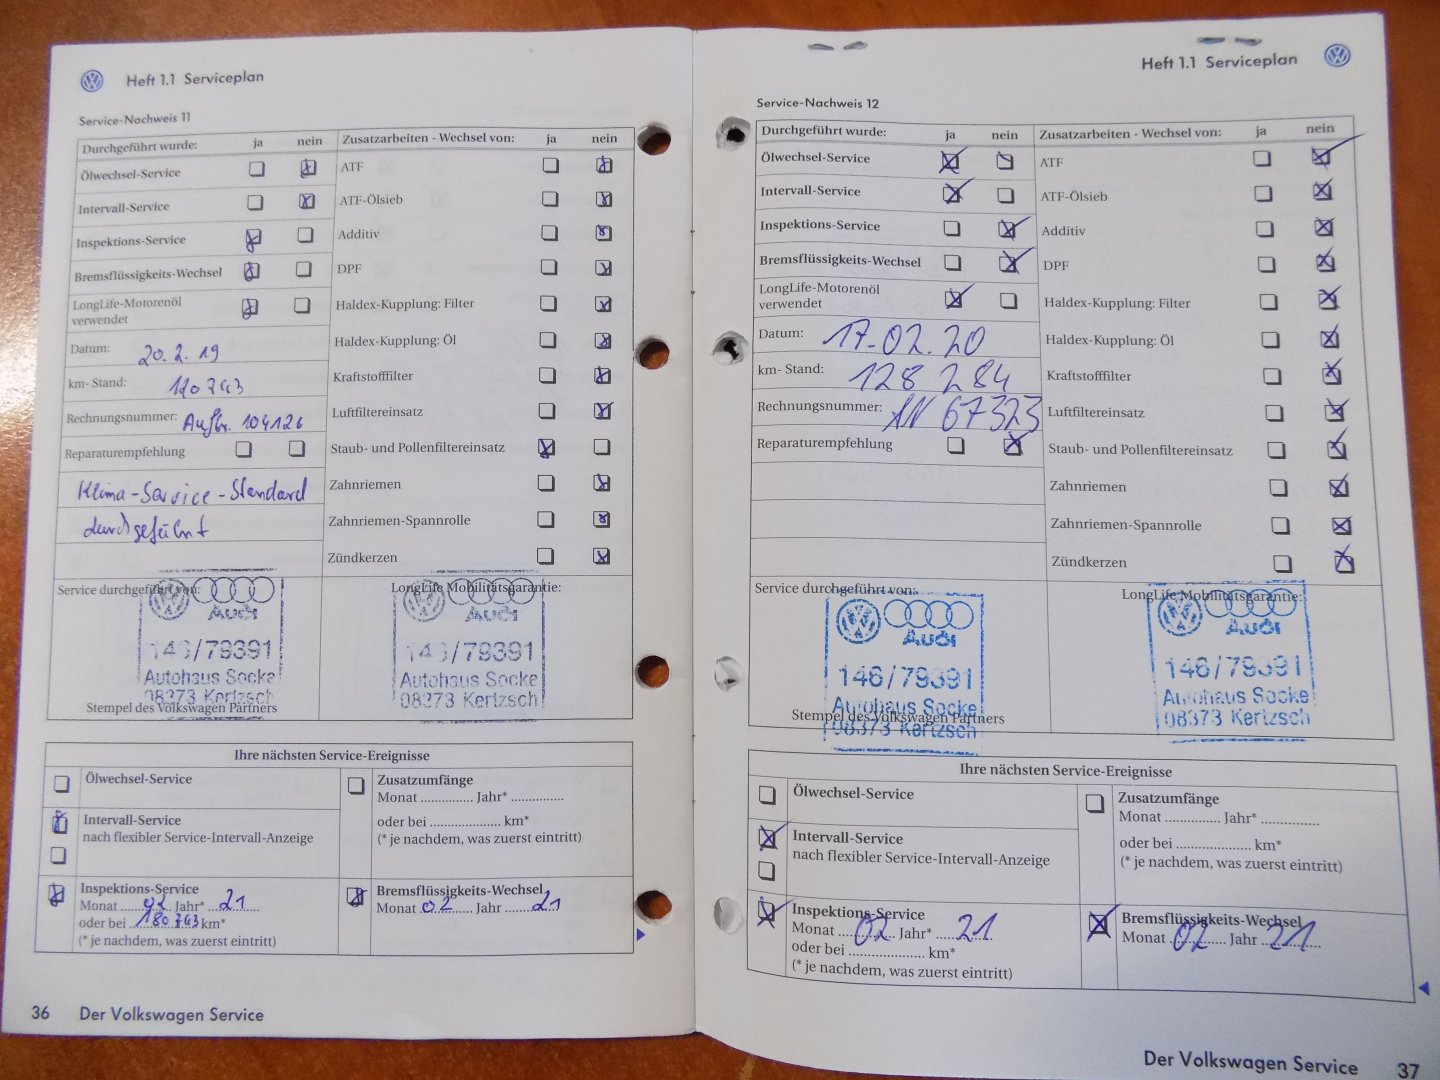 Heft 1.1 Serviceplan
Service-Nachweis 11
Durchgeführt wurde: ja nein Zusatzarbeiten - Wechsel von: ja nein
Ölwechsel-Service ATF
Intervall-Service ATF-Ölsieb
Inspektions-Service Additiv
Bremsflüssigkeits-Wechsel DPF
LongLife-Motorenöl Haldex-Kupplung: Filter
verwendet
Datum: 20.2.19 Haldex-Kupplung: Öl
km- Stand: 120743 Kraftstofffilter
Rechnungsnummer: Auftr. 104126 Luftfiltereinsatz
Reparaturempfehlung Staub- und Pollenfiltereinsatz
Klima-Service-Standard Zahnriemen
durchgeführt Zahnriemen-Spannrolle
Zündkerzen
Service durchgeführt von: LongLife Mobilitätsgarantie:
Audi Audi
146/79391 146/79391
Autohaus Socke Autohaus Socke
08373 Kertzsch 08373 Kertzsch
Stempel des Volkswagen Partners
Ihre nächsten Service-Ereignisse
Ölwechsel-Service Zusatzumfänge
Monat .............. Jahr* ..............
Intervall-Service oder bei .................... km*
nach flexibler Service-Intervall-Anzeige (* je nachdem, was zuerst eintritt)
Inspektions-Service Bremsflüssigkeits-Wechsel
Monat 02 Jahr* 21 Monat 02 Jahr 21
oder bei 180743 km*
(* je nachdem, was zuerst eintritt)
36 Der Volkswagen Service
Heft 1.1 Serviceplan
Service-Nachweis 12
Durchgeführt wurde: ja nein Zusatzarbeiten - Wechsel von: ja nein
Ölwechsel-Service ATF
Intervall-Service ATF-Ölsieb
Inspektions-Service Additiv
Bremsflüssigkeits-Wechsel DPF
LongLife-Motorenöl Haldex-Kupplung: Filter
verwendet
Datum: 17.02.20 Haldex-Kupplung: Öl
km- Stand: 128 284 Kraftstofffilter
Rechnungsnummer: AN 67323 Luftfiltereinsatz
Reparaturempfehlung Staub- und Pollenfiltereinsatz
Zahnriemen
Zahnriemen-Spannrolle
Zündkerzen
Service durchgeführt von: LongLife Mobilitätsgarantie:
Audi Audi
146/79391 146/79391
Autohaus Socke Autohaus Socke
Stempel des Volkswagen Partners
08373 Kertzsch 08373 Kertzsch
Ihre nächsten Service-Ereignisse
Ölwechsel-Service Zusatzumfänge
Monat .............. Jahr* ..............
Intervall-Service oder bei .................... km*
nach flexibler Service-Intervall-Anzeige (* je nachdem, was zuerst eintritt)
Inspektions-Service Bremsflüssigkeits-Wechsel
Monat 02 Jahr* 21 Monat 02 Jahr 21
oder bei .................... km*
(* je nachdem, was zuerst eintritt)
Der Volkswagen Service 37